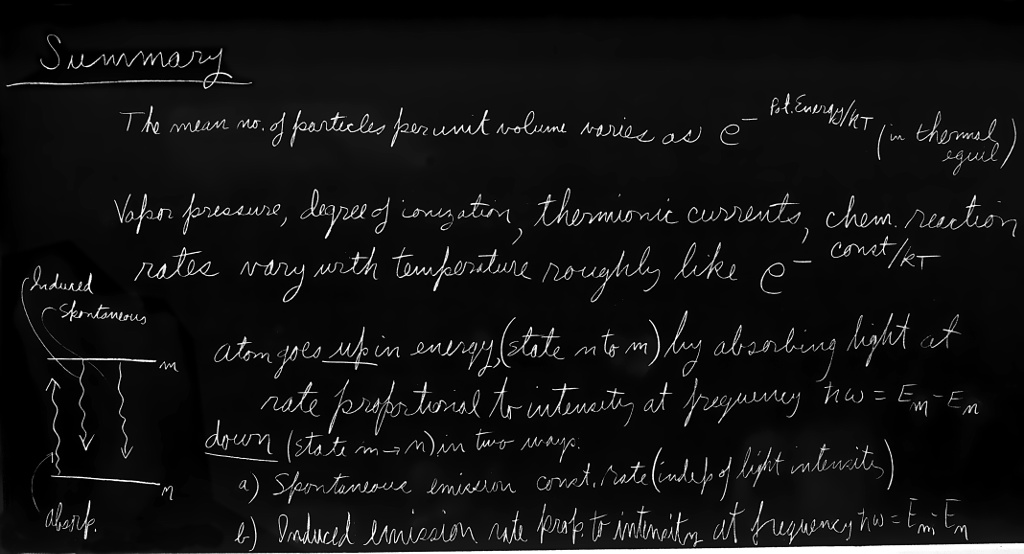 Summary
The mean no. of particles per unit volume varies as e^- Pot. Energy/kT (in thermal
equil)
Vapor pressure, degree of ionization, thermionic currents, chem. reaction
rates vary with temperature roughly like e^- const/kT
Induced
Spontaneous
m
n
absorp.
atom goes up in energy, (state n to m) by absorbing light at
rate proportional to intensity at frequency ħω = Em - En
down (state m → n) in two ways:
a) Spontaneous emission const. rate (indep of light intensity)
b) Induced emission rate prop. to intensity at frequency ħω = Em - En